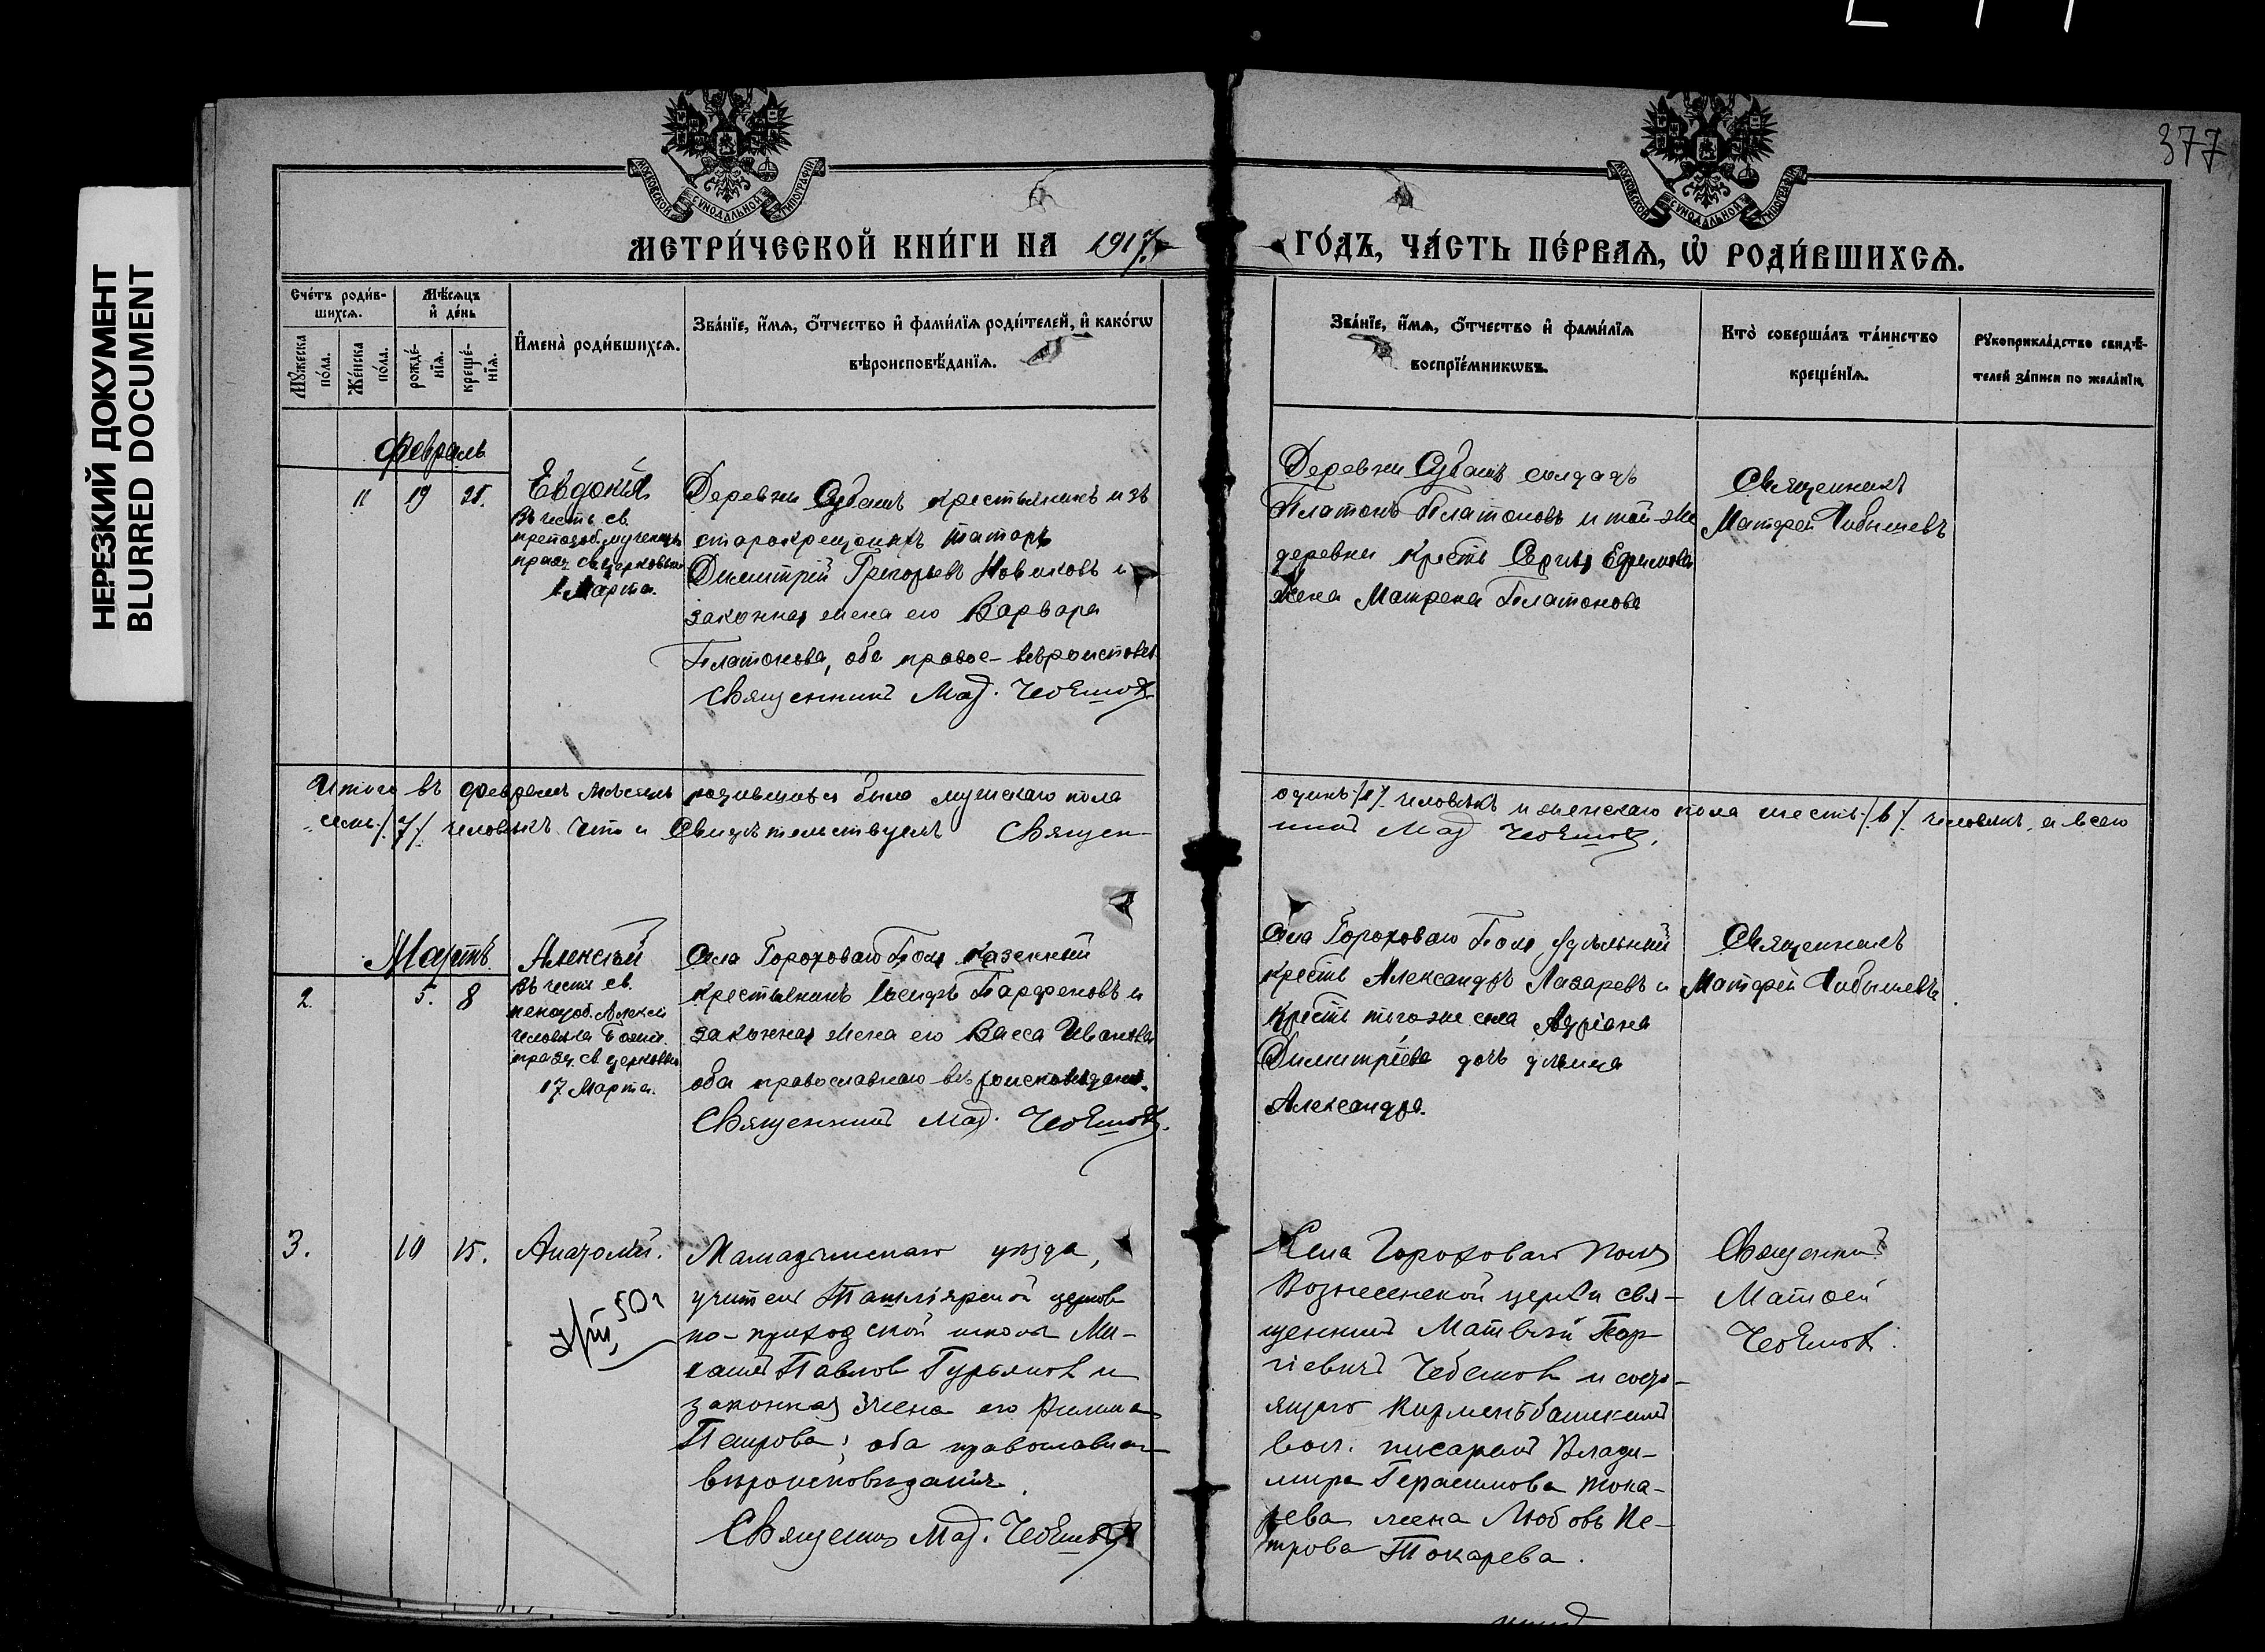 377
НЕРЕЗКИЙ ДОКУМЕНТ
BLURRED DOCUMENT
МОСКОВСКОЙ СѴНОДАЛЬНОЙ ТИПОГРАФІИ
МОСКОВСКОЙ СѴНОДАЛЬНОЙ ТИПОГРАФІИ
МЕТРИ́ЧЕСКОЙ КНИ́ГИ НА 1917. ГО́ДЪ, ЧА́СТЬ ПЕ́РВАѦ, Ѡ҆ РОДИ́ВШИХСѦ.
Счетъ роди́в-
шихсѧ.
Мꙋжеска по́ла.
Же́нска по́ла.
Мѣсѧцъ
и҆ де́нь
рожде́-
нїѧ.
креще́-
нїѧ.
И҆мена̀ роди́вшихсѧ.
Зва́нїе, и҆́мѧ, ѻ҆́тчество и҆ фами́лїѧ роди́телей, и҆ како́гѡ
вѣроисповѣ́данїѧ.
Зва́нїе, и҆́мѧ, ѻ҆́тчество и҆ фами́лїѧ
воспрїе́мникѡвъ.
Кто̀ соверша́лъ та́инство
креще́нїѧ.
Рꙋкоприкла́дство свидѣ́-
телей за́писи по жела́нїю.
Февраль
11 19 25.
Евдокія
Въ честь св.
препод. мученицы
празд. св. церковью
1 Марта.
Деревни Субашъ крестьянинъ изъ
старокрещеныхъ татаръ
Димитрій Григорьевъ Новиковъ и
законная жена его Варвара
Платонова, оба правос- вѣроисповѣд.
Священникъ Мат. Чебышевъ
Деревни Субашъ солдатъ
Платонъ Платоновъ и той-же
деревни крест. Сергѣя Ефимова
жена Матрена Платонова
Священникъ
Матфей Чебышевъ
Итого въ февралѣ мѣсяцѣ родившихся было мужскаго пола одинъ /1/ человѣкъ и женскаго пола шесть /6/ человѣкъ, а всего
семь /7/ человѣкъ что и свидѣтельствуемъ Священ-
никъ Мат Чебышевъ.
Мартъ.
2. 5. 8
Алексѣй
Въ честь св.
преподоб. Алексія
человѣка Божія.
празд. св. церковью
17 Марта.
Села Гороховаго Поля казенный
крестьянинъ Іосифъ Парфеновъ и
законная жена его Васса Иванова
оба православнаго вѣроисповѣданія.
Священникъ Мат. Чебышевъ.
Села Гороховаго Поля удѣльный
крест. Александръ Лазаревъ и
крест. того же села Адріана
Димитріева дочь дѣвица
Александра.
Священникъ
Матфей Чебышевъ
3. 10 15.
Анатолій.
50 г
Мамадышскаго уѣзда,
учитель Ташлярской церков
но-приходской школы Ми-
хаилъ Павлов Гурьянов и
законная жена его
Петрова; оба православнаго
вѣроисповѣданія.
Священник Мат. Чебышевъ
Села Гороховаго Поля
Вознесенской церкви свя-
щенникъ Матвѣй
Чебышев и состо-
ящаго
вол. писарем Влади-
мира Герасимова Тока-
рева жена Любовь Пе-
трова Токарева.
Священникъ
Матфей
Чебышев.